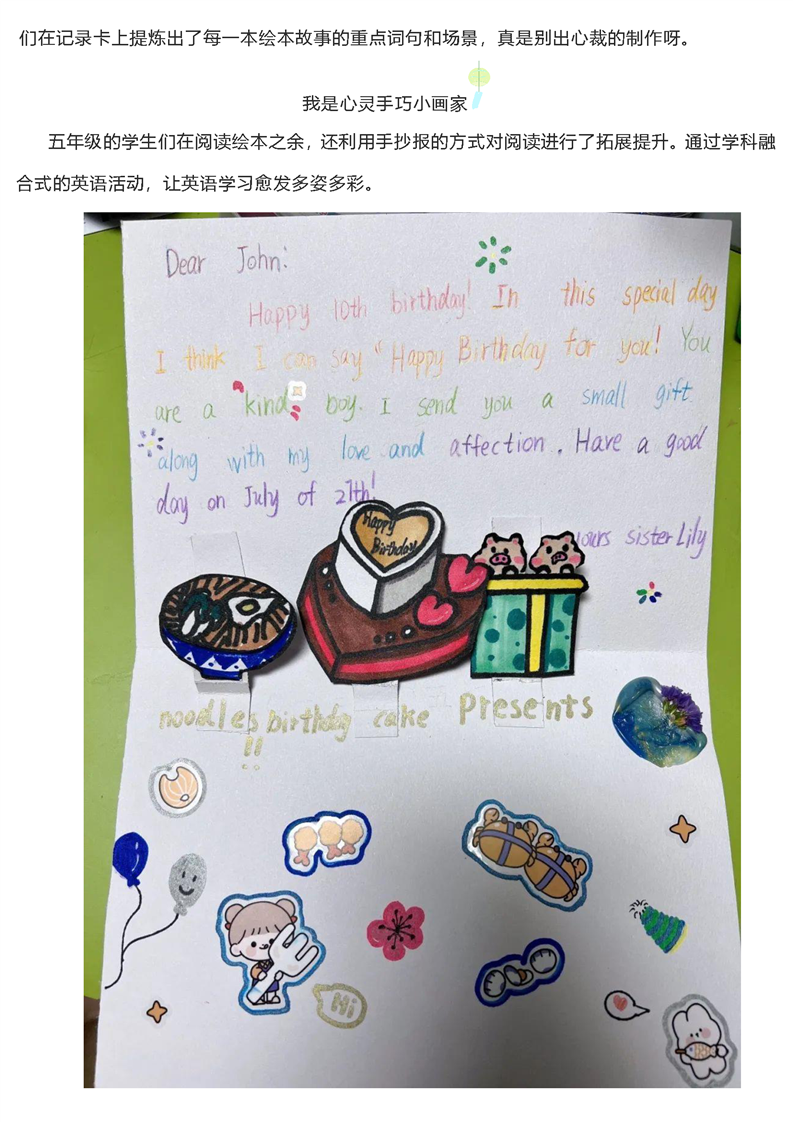 们在记录卡上提炼出了每一本绘本故事的重点词句和场景，真是别出心裁的制作呀。
我是心灵手巧小画家
五年级的学生们在阅读绘本之余，还利用手抄报的方式对阅读进行了拓展提升。通过学科融
合式的英语活动，让英语学习愈发多姿多彩。
Dear John:
Happy 10th birthday! In this special day
I think I can say "Happy Birthday for you! You
are a "kind" boy. I send you a small gift
along with my love and affection. Have a good
day on July of 27th!
yours sister Lily
Happy
Birthday
noodles birthday cake Presents
!!
Hi